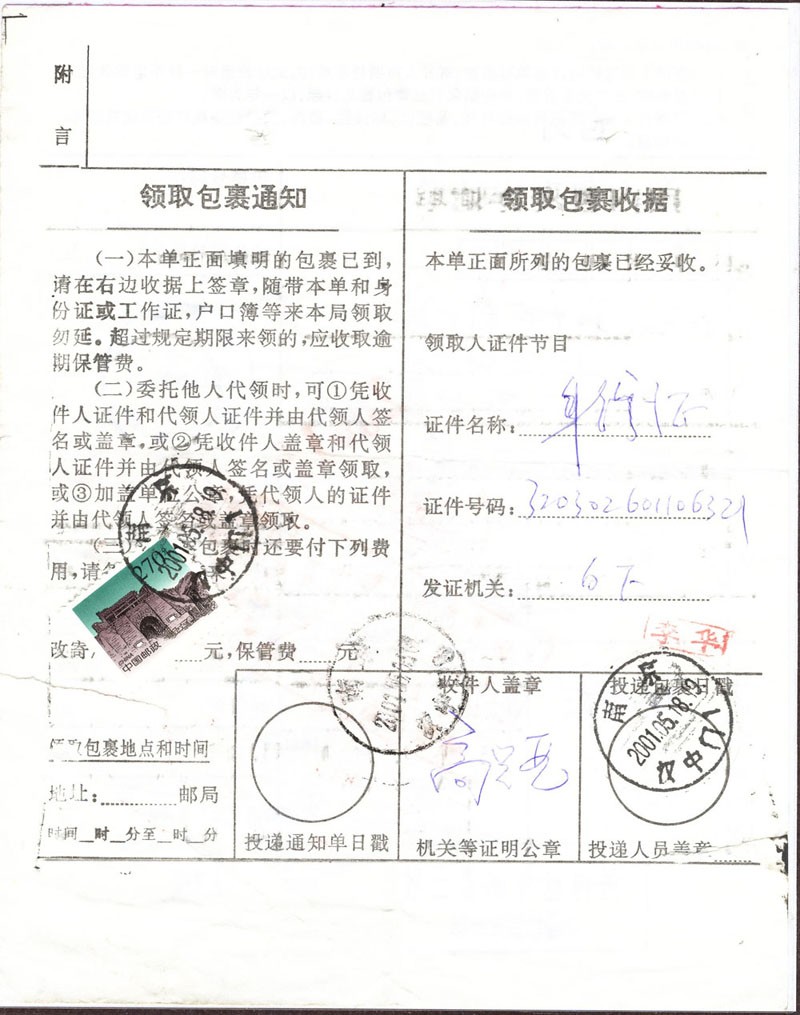 附
言
领取包裹通知
(一)本单正面填明的包裹已到,
请在右边收据上签章,随带本单和身
份证或工作证,户口簿等来本局领取
勿延。超过规定期限来领的,应收取逾
期保管费。
(二)委托他人代领时,可①凭收
件人证件和代领人证件并由代领人签
名或盖章,或②凭收件人盖章和代领
人证件并由代领人签名或盖章领取,
或③加盖单 公 ,凭代领人的证件
并由代领人签名或盖章领取。
(三) 包裹时还要付下列费
用,请
改寄 元,保管费 元
领取包裹地点和时间
地址: 邮局
时间 时 分至 时 分
投递通知单日戳
领取包裹收据
本单正面所列的包裹已经妥收。
领取人证件节目
证件名称:
证件号码:320302601106321
发证机关:白下
李华
收件人盖章
机关等证明公章
投递包裹日戳
投递人员盖章
南京
2001.05.18.19
汉中门
270
中国邮政
CHINA
南京
2001.05.18.19
汉中门